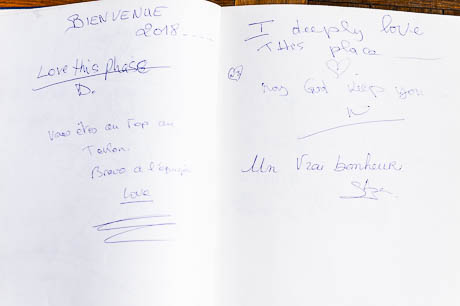 BIENVENUE
2018....
Love this phase
D.
Vous êtes au Top au
Bravo à l'équipe
Love
I deeply love
This place
May God keep you
Un vrai bonheur